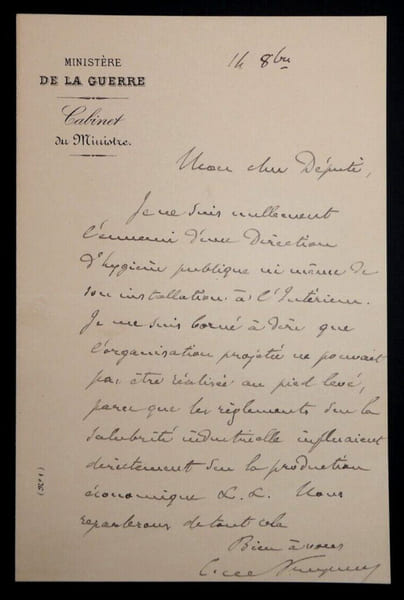 MINISTÈRE
DE LA GUERRE
Cabinet
du Ministre.
14 8bre
Mon cher Député,
Je ne suis nullement
l'ennemi d'une Direction
d'hygiène publique ni même de
son installation à l'Intérieur.
Je me suis borné à dire que
l'organisation projetée ne pouvait
pas être réalisée au pied levé,
parce que les règlements sur la
salubrité industrielle influaient
directement sur la production
économique &. &. Nous
reparlerons de tout cela
Bien à vous